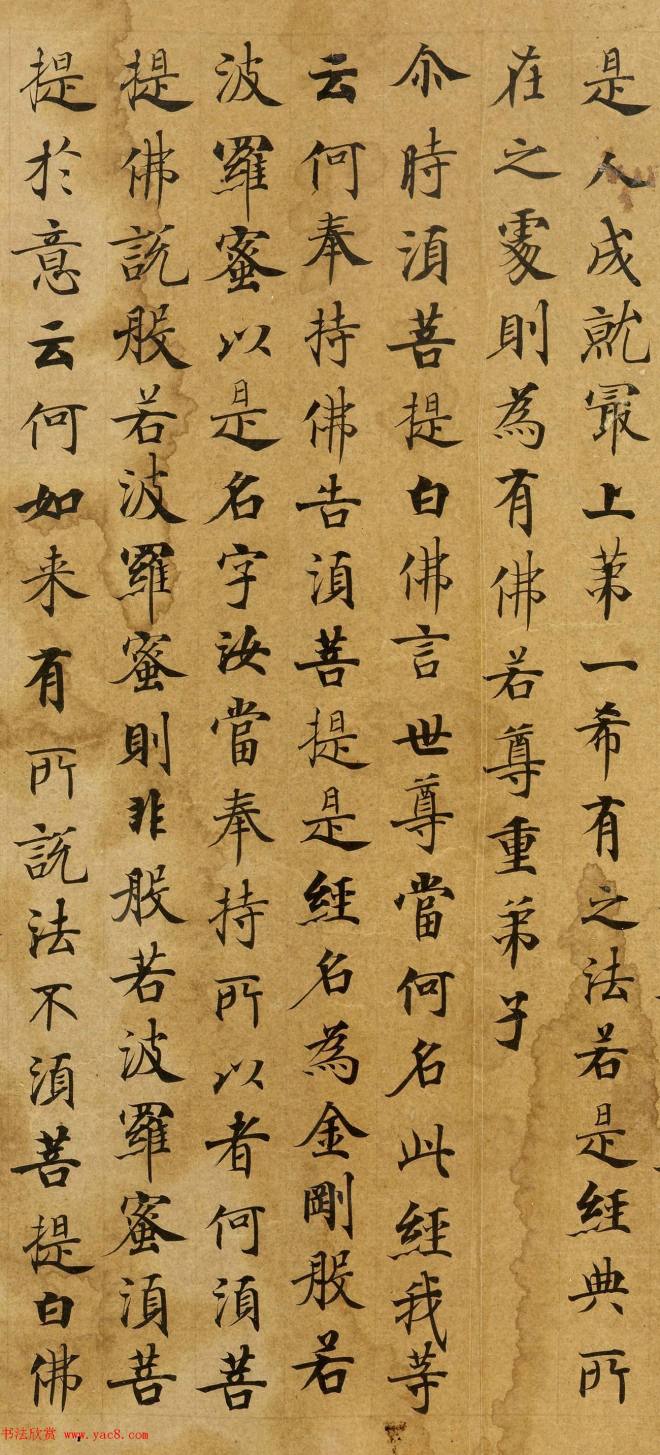 是人成就冣上苐一希有之法若是經典所
在之䖏則為有佛若尊重弟子
尒時湏菩提白佛言世尊當何名此經我等
云何奉持佛告湏菩提是經名為金剛般若
波羅蜜以是名字汝當奉持所以者何湏菩
提佛說般若波羅蜜則非般若波羅蜜湏菩
提於意云何如来有所說法不湏菩提白佛
书法欣赏 www.yac8.com